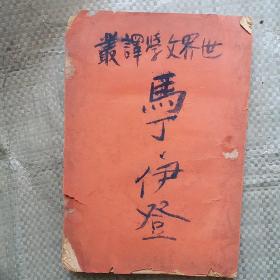 世界文學譯叢
馬丁·伊登